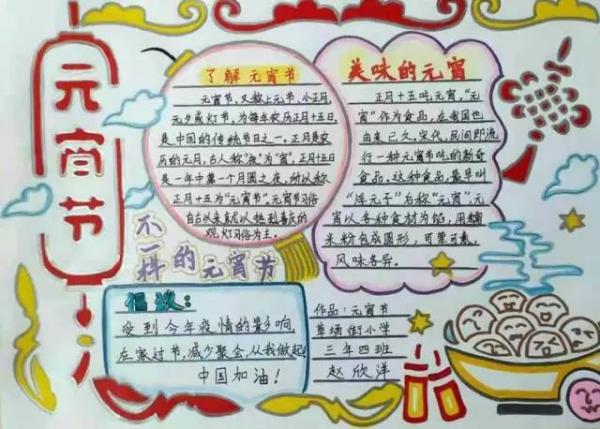 元宵节
了解元宵节
元宵节，又称上元节，小正月，
元夕或灯节，为每年农历正月十五日，
是中国的传统节日之一。正月是农
历的元月，古人称“夜”为“宵”，正月十五日
是一年中第一个月圆之夜，所以称
正月十五为“元宵节”。元宵节习俗
自古以来就以热烈喜庆的
观灯习俗为主。
美味的元宵
正月十五吃元宵，“元
宵”作为食品，在我国也
由来已久，宋代，民间即流
行一种元宵节吃的新奇
食品。这种食品，最早叫
“浮元子”后称“元宵”，元
宵以各种食材为馅，用糯
米粉包成圆形，可荤可素，
风味各异。
不一样的元宵节
倡议：
受到今年疫情的影响
在家过节，减少聚会，从我做起
中国加油！
作品：元宵节
草场街小学
三年四班
赵欣洋